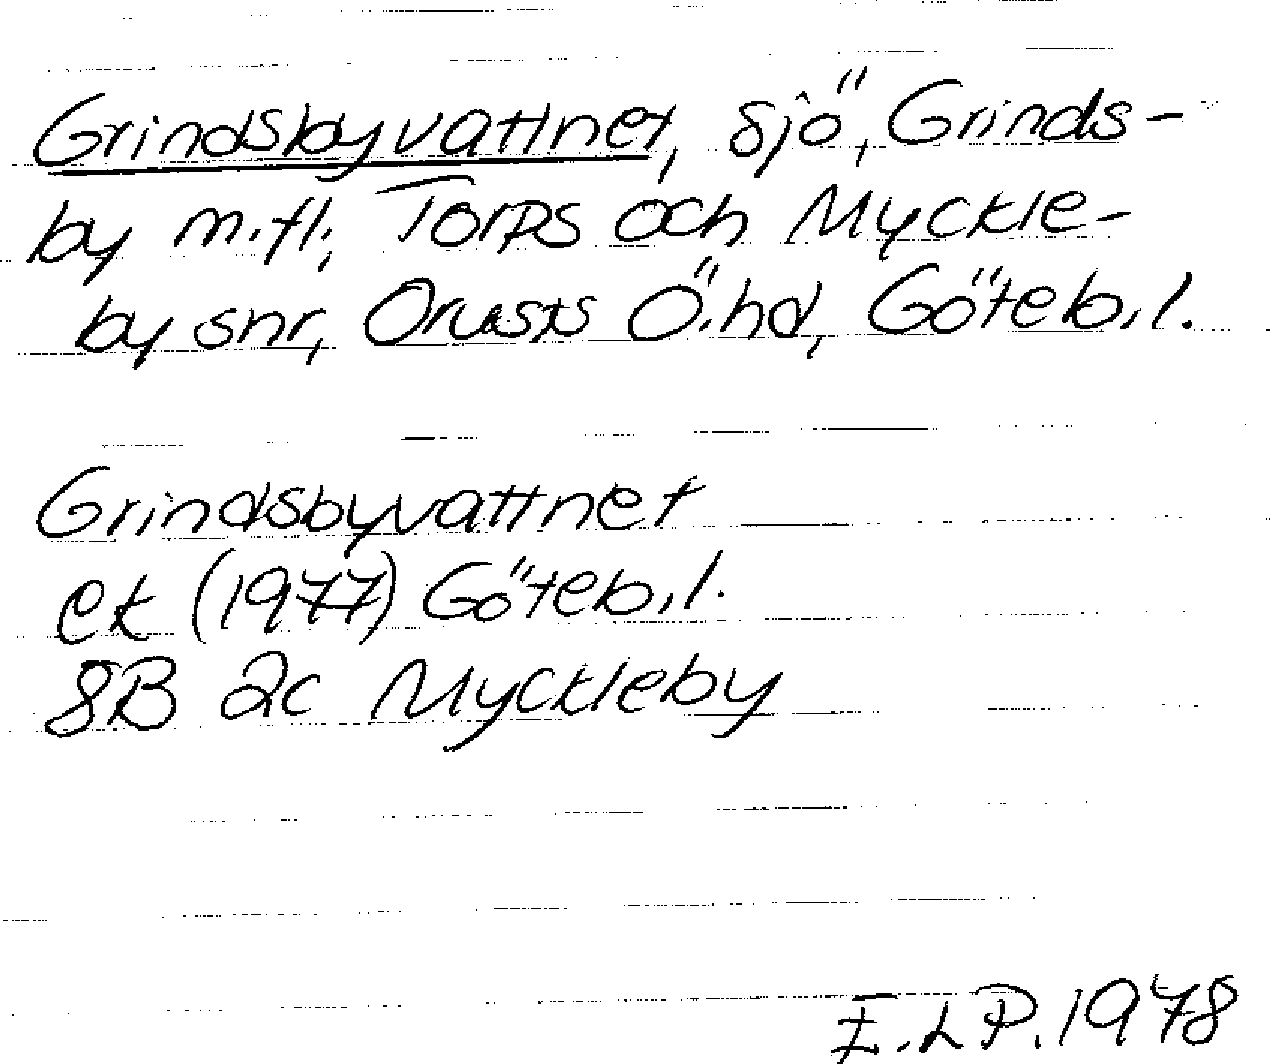 Grindsbyvattnet, sjö, Grinds-
by m.fl., Torps och Myckle-
by snr, Orusts Ö. hd, Göteb. l.
Grindsbyvattnet
ek (1977) Göteb. l.
8B 2c Myckleby
E.LP. 1978